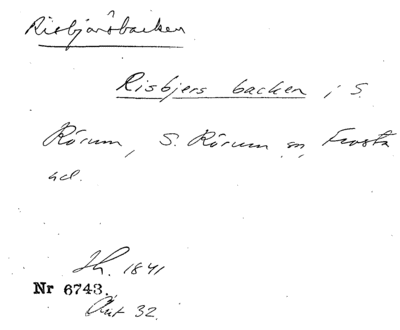 Risbjärsbacken
Risbjers backen i S.
Rörum, S. Rörum sn, Frosta
hd.
Lh. 1841
Nr 6743.
Akt 32.